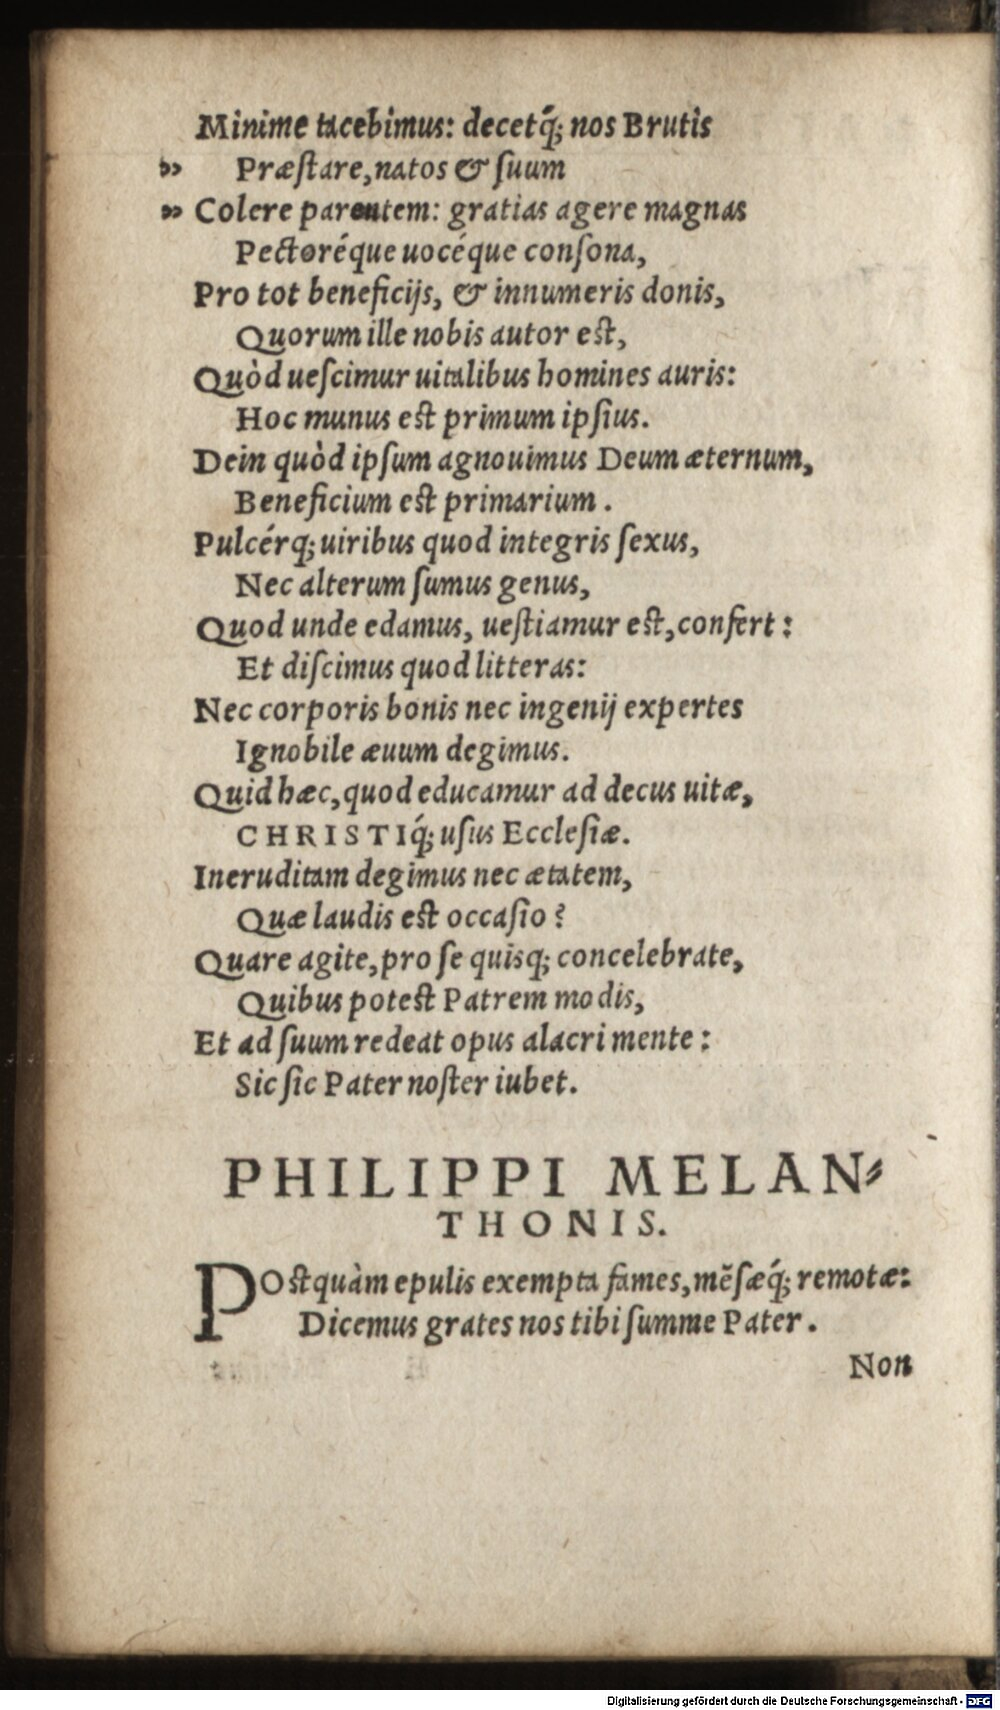 Minime tacebimus: decetq́; nos Brutis
» Præſtare, natos & ſuum
» Colere parentem: gratias agere magnas
Pectoréque uocéque conſona,
Pro tot beneficijs, & innumeris donis,
Quorum ille nobis autor est,
Quòd ueſcimur uitalibus homines auris:
Hoc munus est primum ipſius.
Dein quòd ipſum agnouimus Deum æternum,
Beneficium est primarium.
Pulcérq; uiribus quod integris ſexus,
Nec alterum ſumus genus,
Quod unde edamus, ueſtiamur est, confert:
Et diſcimus quod litteras:
Nec corporis bonis nec ingenij expertes
Ignobile æuum degimus.
Quid hæc, quod educamur ad decus uitæ,
CHRISTIq́; uſus Eccleſiæ.
Ineruditam degimus nec ætatem,
Quæ laudis est occaſio?
Quare agite, pro ſe quisq; concelebrate,
Quibus potest Patrem modis,
Et ad ſuum redeat opus alacri mente:
Sic ſic Pater noſter iubet.
PHILIPPI MELAN⸗
THONIS.
POstquàm epulis exempta fames, mẽſæq́; remotæ:
Dicemus grates nos tibi ſumme Pater.
Non
Digitalisierung gefördert durch die Deutsche Forschungsgemeinschaft - DFG